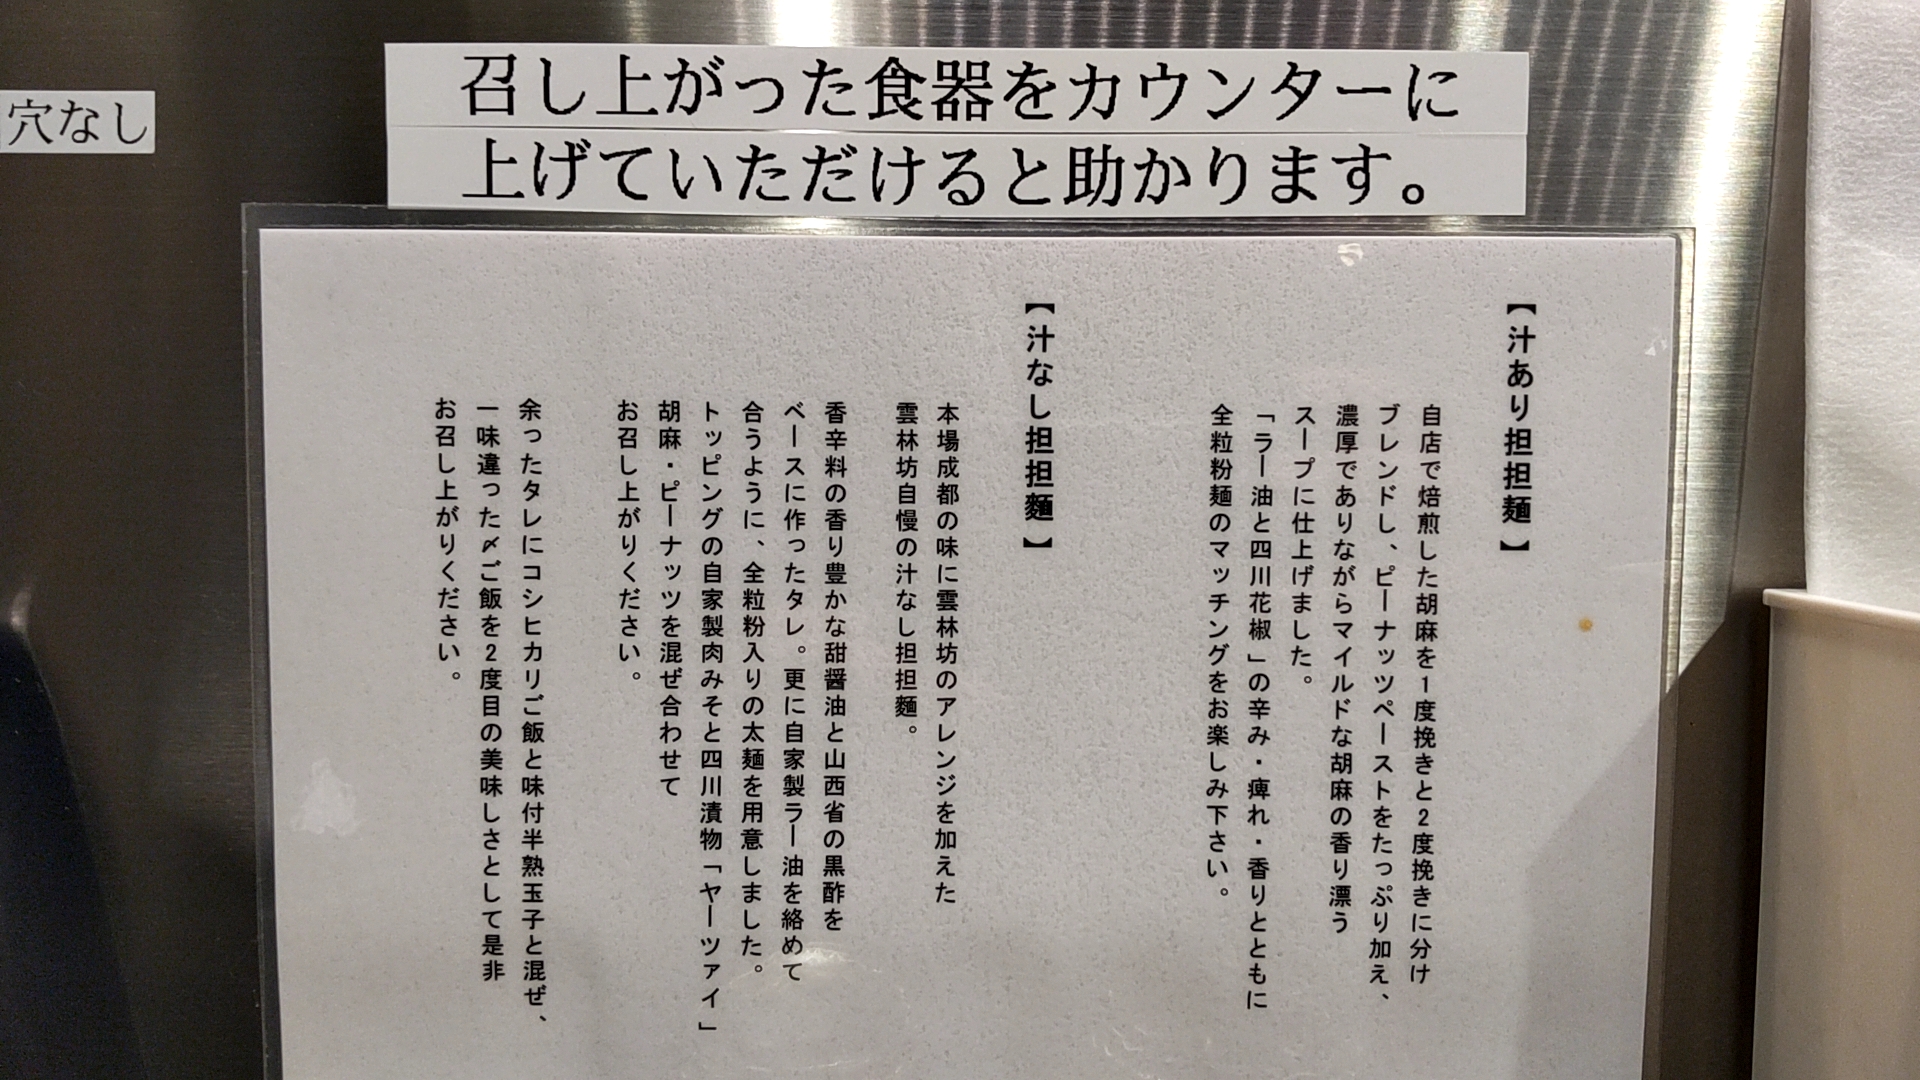 穴なし
召し上がった食器をカウンターに
上げていただけると助かります。
【汁あり担担麺】
自店で焙煎した胡麻を1度挽きと2度挽きに分け
ブレンドし、ピーナッツペーストをたっぷり加え、
濃厚でありながらマイルドな胡麻の香り漂う
スープに仕上げました。
「ラー油と四川花椒」の辛み・痺れ・香りとともに
全粒粉麺のマッチングをお楽しみ下さい。
【汁なし担担麵】
本場成都の味に雲林坊のアレンジを加えた
雲林坊自慢の汁なし担担麵。
香辛料の香り豊かな甜醤油と山西省の黒酢を
ベースに作ったタレ。更に自家製ラー油を絡めて
合うように、全粒粉入りの太麺を用意しました。
トッピングの自家製肉みそと四川漬物「ヤーツァイ」
胡麻・ピーナッツを混ぜ合わせて
お召し上がりください。
余ったタレにコシヒカリご飯と味付半熟玉子と混ぜ、
一味違った〆ご飯を2度目の美味しさとして是非
お召し上がりください。